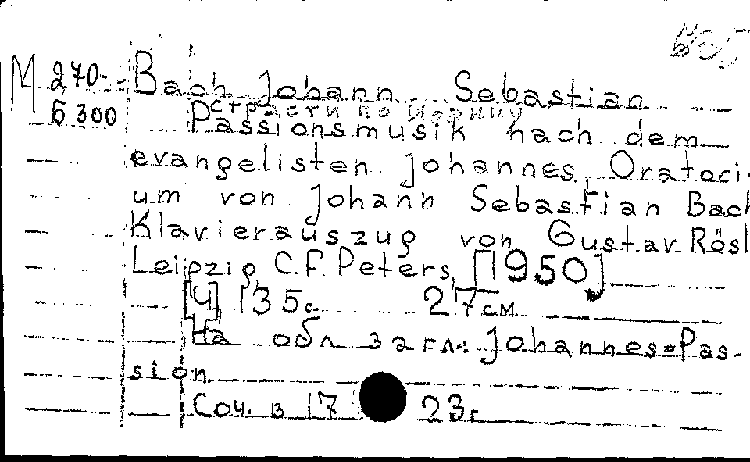 М 270- Bach Johann Sebastian
Б 300 Страсти по Иоанну
Passionsmusik nach dem
evangelisten Johannes, Oratori-
um von Johann Sebastian Bach
Klavierauszug von Gustav Rösl
Leipzig, C.F. Peters, [1950]
[4] 135с. 27см
На обл загл: Johannes=Pas-
sion
Соч. в 17 23г